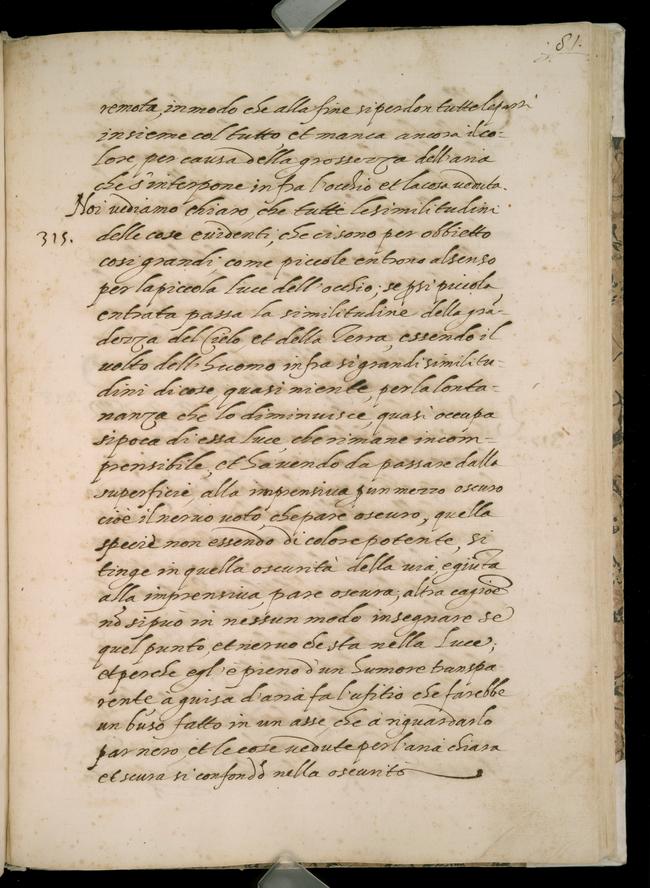 81.
remota, in modo che alla fine si perdon tutte le parti
insieme col tutto et manca ancora il co-
lore per causa della grossezza dell'aria
che s'interpone infra l'occhio et la cosa veduta.
Noi vediamo chiaro che tutte le similitudini
315. delle cose evidenti, che ci sono per obbietto
cosi grandi come piccole entrono al senso
per la piccola luce dell'occhio; se p si piccola
entrata passa la similitudine della gra-
dezza del Cielo et della Terra, essendo il
volto dell'huomo infra si grandi similitu-
dini di cose, quasi niente, per la lonta-
nanza che lo diminuisce, quasi occupa
si poca di essa luce, che rimane incom-
prensibile, et havendo da passare dalla
superficie alla imprensiva p un mezzo oscuro
cioè il nervo voto, che pare oscuro, quella
specie non essendo di colore potente, si
tinge in quella oscurità della via, e giuta
alla imprensiva, pare oscura; altra cagioe
nō si puo in nessun modo insegnare se
quel punto, et nervo che sta nella Luce;
et perche egl'è pieno d'un humore transpa
rente à guisa d'aria fa l'ufitio che farebbe
un buso fatto in un asse che à riguardarlo
par nero, et le cose vedute per l'aria chiara
et scura si confondō nella oscurità